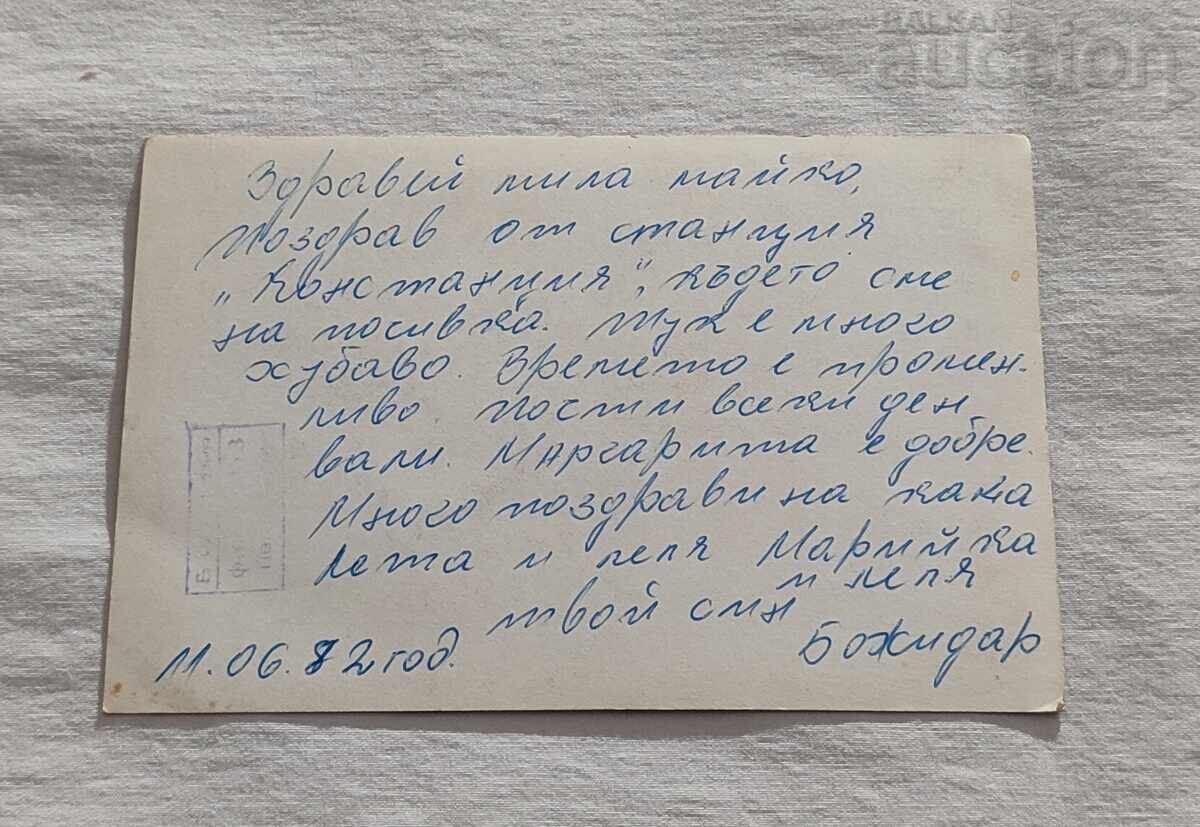 BALKAN
auction
Здравей мила майко,
Поздрав от станция
„Констанция", където сме
на почивка. Тук е много
хубаво. Времето е промен-
ливо. Почти всеки ден
вали. Маргарита е добре.
Много поздрави на кака
и леля Марийка
и леля
твой син
Божидар
11.06.82 год.